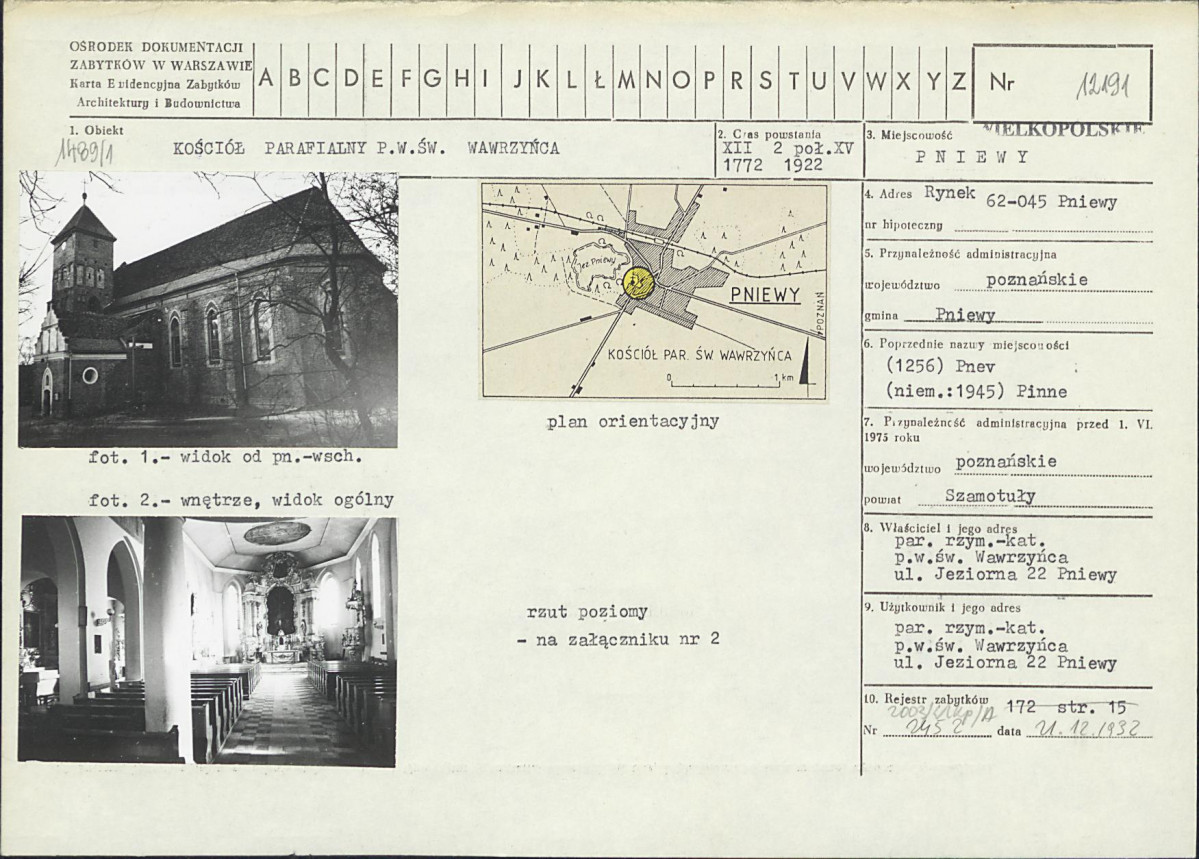 OŚRODEK DOKUMENTACJI
ZABYTKÓW W WARSZAWIE
Karta Ewidencyjna Zabytków
Architektury i Budownictwa
A B C D E F G H I J K L Ł M N O P R S T U V W X Y Z
Nr 12191
1. Obiekt
1489/1
KOŚCIÓŁ PARAFIALNY P.W.ŚW. WAWRZYŃCA
2. Czas powstania
XII 2 poł.XV
1772 1922
WIELKOPOLSKIE
3. Miejscowość
PNIEWY
4. Adres Rynek 62-045 Pniewy
nr hipoteczny
5. Przynależność administracyjna
województwo poznańskie
gmina Pniewy
6. Poprzednie nazwy miejscowości
(1256) Pnev
(niem.:1945) Pinne
7. Przynależność administracyjna przed 1. VI.
1975 roku
województwo poznańskie
powiat Szamotuły
8. Właściciel i jego adres
par. rzym.-kat.
p.w.św. Wawrzyńca
ul. Jeziorna 22 Pniewy
9. Użytkownik i jego adres
par. rzym.-kat.
p.w.św. Wawrzyńca
ul. Jeziorna 22 Pniewy
10. Rejestr zabytków 172 str. 15
Nr 2452 data 21.12.1932
jez. Pniewy
PNIEWY
POZNAŃ
KOŚCIÓŁ PAR. ŚW WAWRZYŃCA
0 1 km
plan orientacyjny
fot. 1.- widok od pn.-wsch.
fot. 2.- wnętrze, widok ogólny
rzut poziomy
- na załączniku nr 2